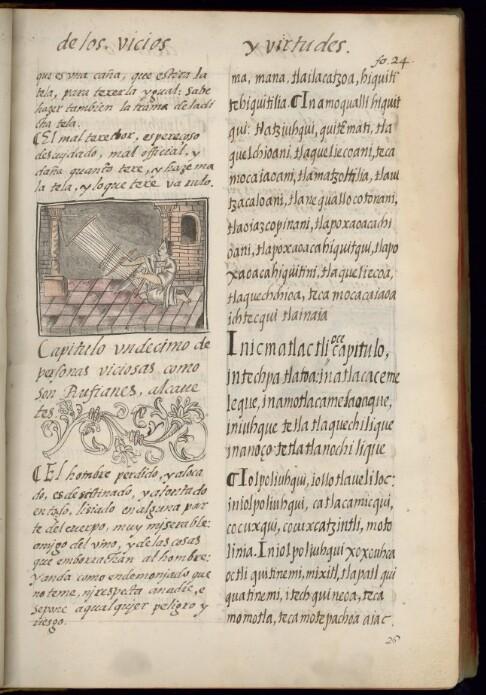 de los. vicios
y virtudes.
fo. 24.
que es vna caña, que estira la
tela, para texerla ygual: sabe
hazer tambien la trama de la di
cha tela.
El mal texedor, es pereçoso
descuydado, mal official, y
daña quanto texe, y haze ma
la tela, y lo que texe va rulo.
Capitulo vndecimo de
personas viciosas como
son Rufianes, alcaue
tes
El hombre perdido, y aloca
do, es desatinado, y atontado
en todo, lisiado en alguna par
te del cuerpo, muy miserable:
amigo del vino, y de las cosas
que emborrachan al hombre:
y anda como endemoniado que
no teme, ni respecta a nadie, e
se pone a qualquier peligro y
riesgo.
ma, mana. tlailacatzoa, hiquiti
tehiquitilia. In amo qualli hiquit
qui: tlatziuhqui, quitemati, tla
quelchioani, tlaqueliecoani, teca
mocaiaoani, tlamatzoltilia, tlauu
tzacaloani, tlanequallo cotonani,
tlaoiazcopinani, tlapoxaoacachi
oani, tlapoxaoacahiquitqui, tlapo
xaoacahiquitini, tlaqueliecoa,
tlaquechihoa, teca mocacaiaoa
ichtecqui tlainaia
Inic matlactli oce capitulo,
intechpa tlatoa: in atlacaceme
leque, in amo tlacamelaoaque,
in iuhque tetlatlaquechilique
in anoço tetlatlanochilique
Iolpoliuhqui, iollotlaueliloc:
in iolpoliuhqui, ca tlacamicqui,
cocuxqui, cocuxcatzintli, moto
linia. In iolpoliuhqui xoxouhca
octli quitinemi, mixitl, tlapatl qui
quatinemi, itech quineoa, teca
momotla, teca motepachoa aiac
26